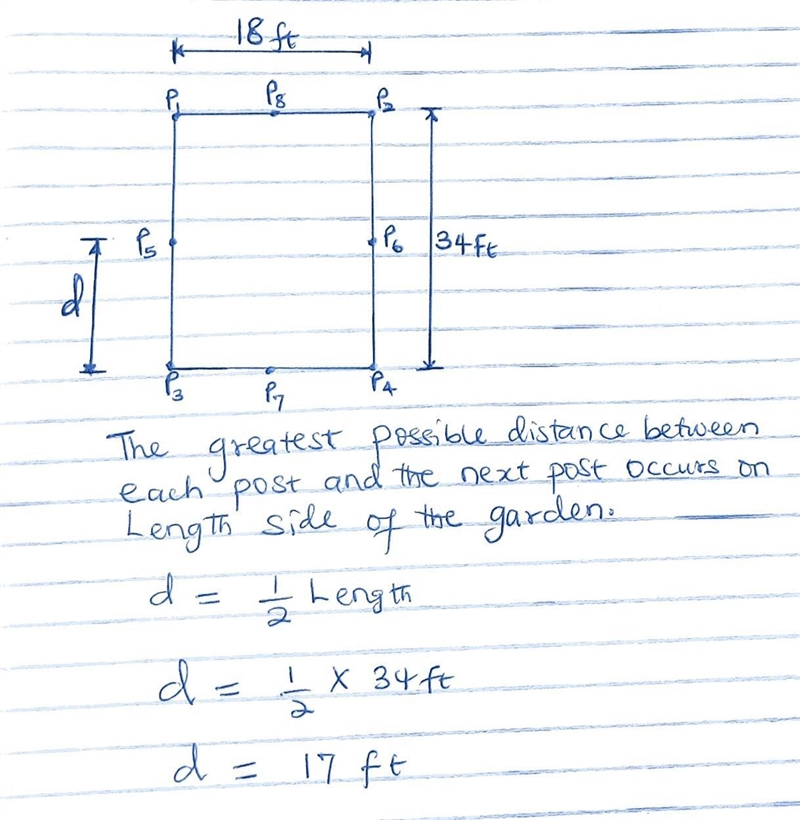 18 ft
P1 P8 P2
P5 P6 34ft
d
P3 P7 P4
The greatest possible distance between
each post and the next post occurs on
Length side of the garden.
d = 1/2 Length
d = 1/2 x 34ft
d = 17 ft